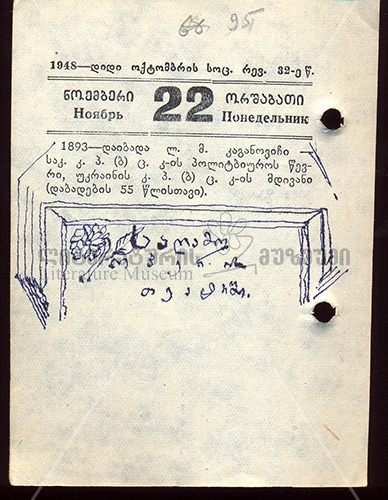 95
1948—დიდი ოქტომბრის სოც. რევ. 32-ე წ.
ნოემბერი 22 ორშაბათი
Ноябрь Понедельник
1893—დაიბადა ლ. მ. კაგანოვიჩი —
საკ. კ. პ. (ბ) ც. კ-ის პოლიტბიუროს წევ-
რი, უკრაინის კ. პ. (ბ) ც. კ-ის მდივანი
(დაბადების 55 წლისთავი).
საღამო
ლიტერატურის მუზეუმი
Literature Museum